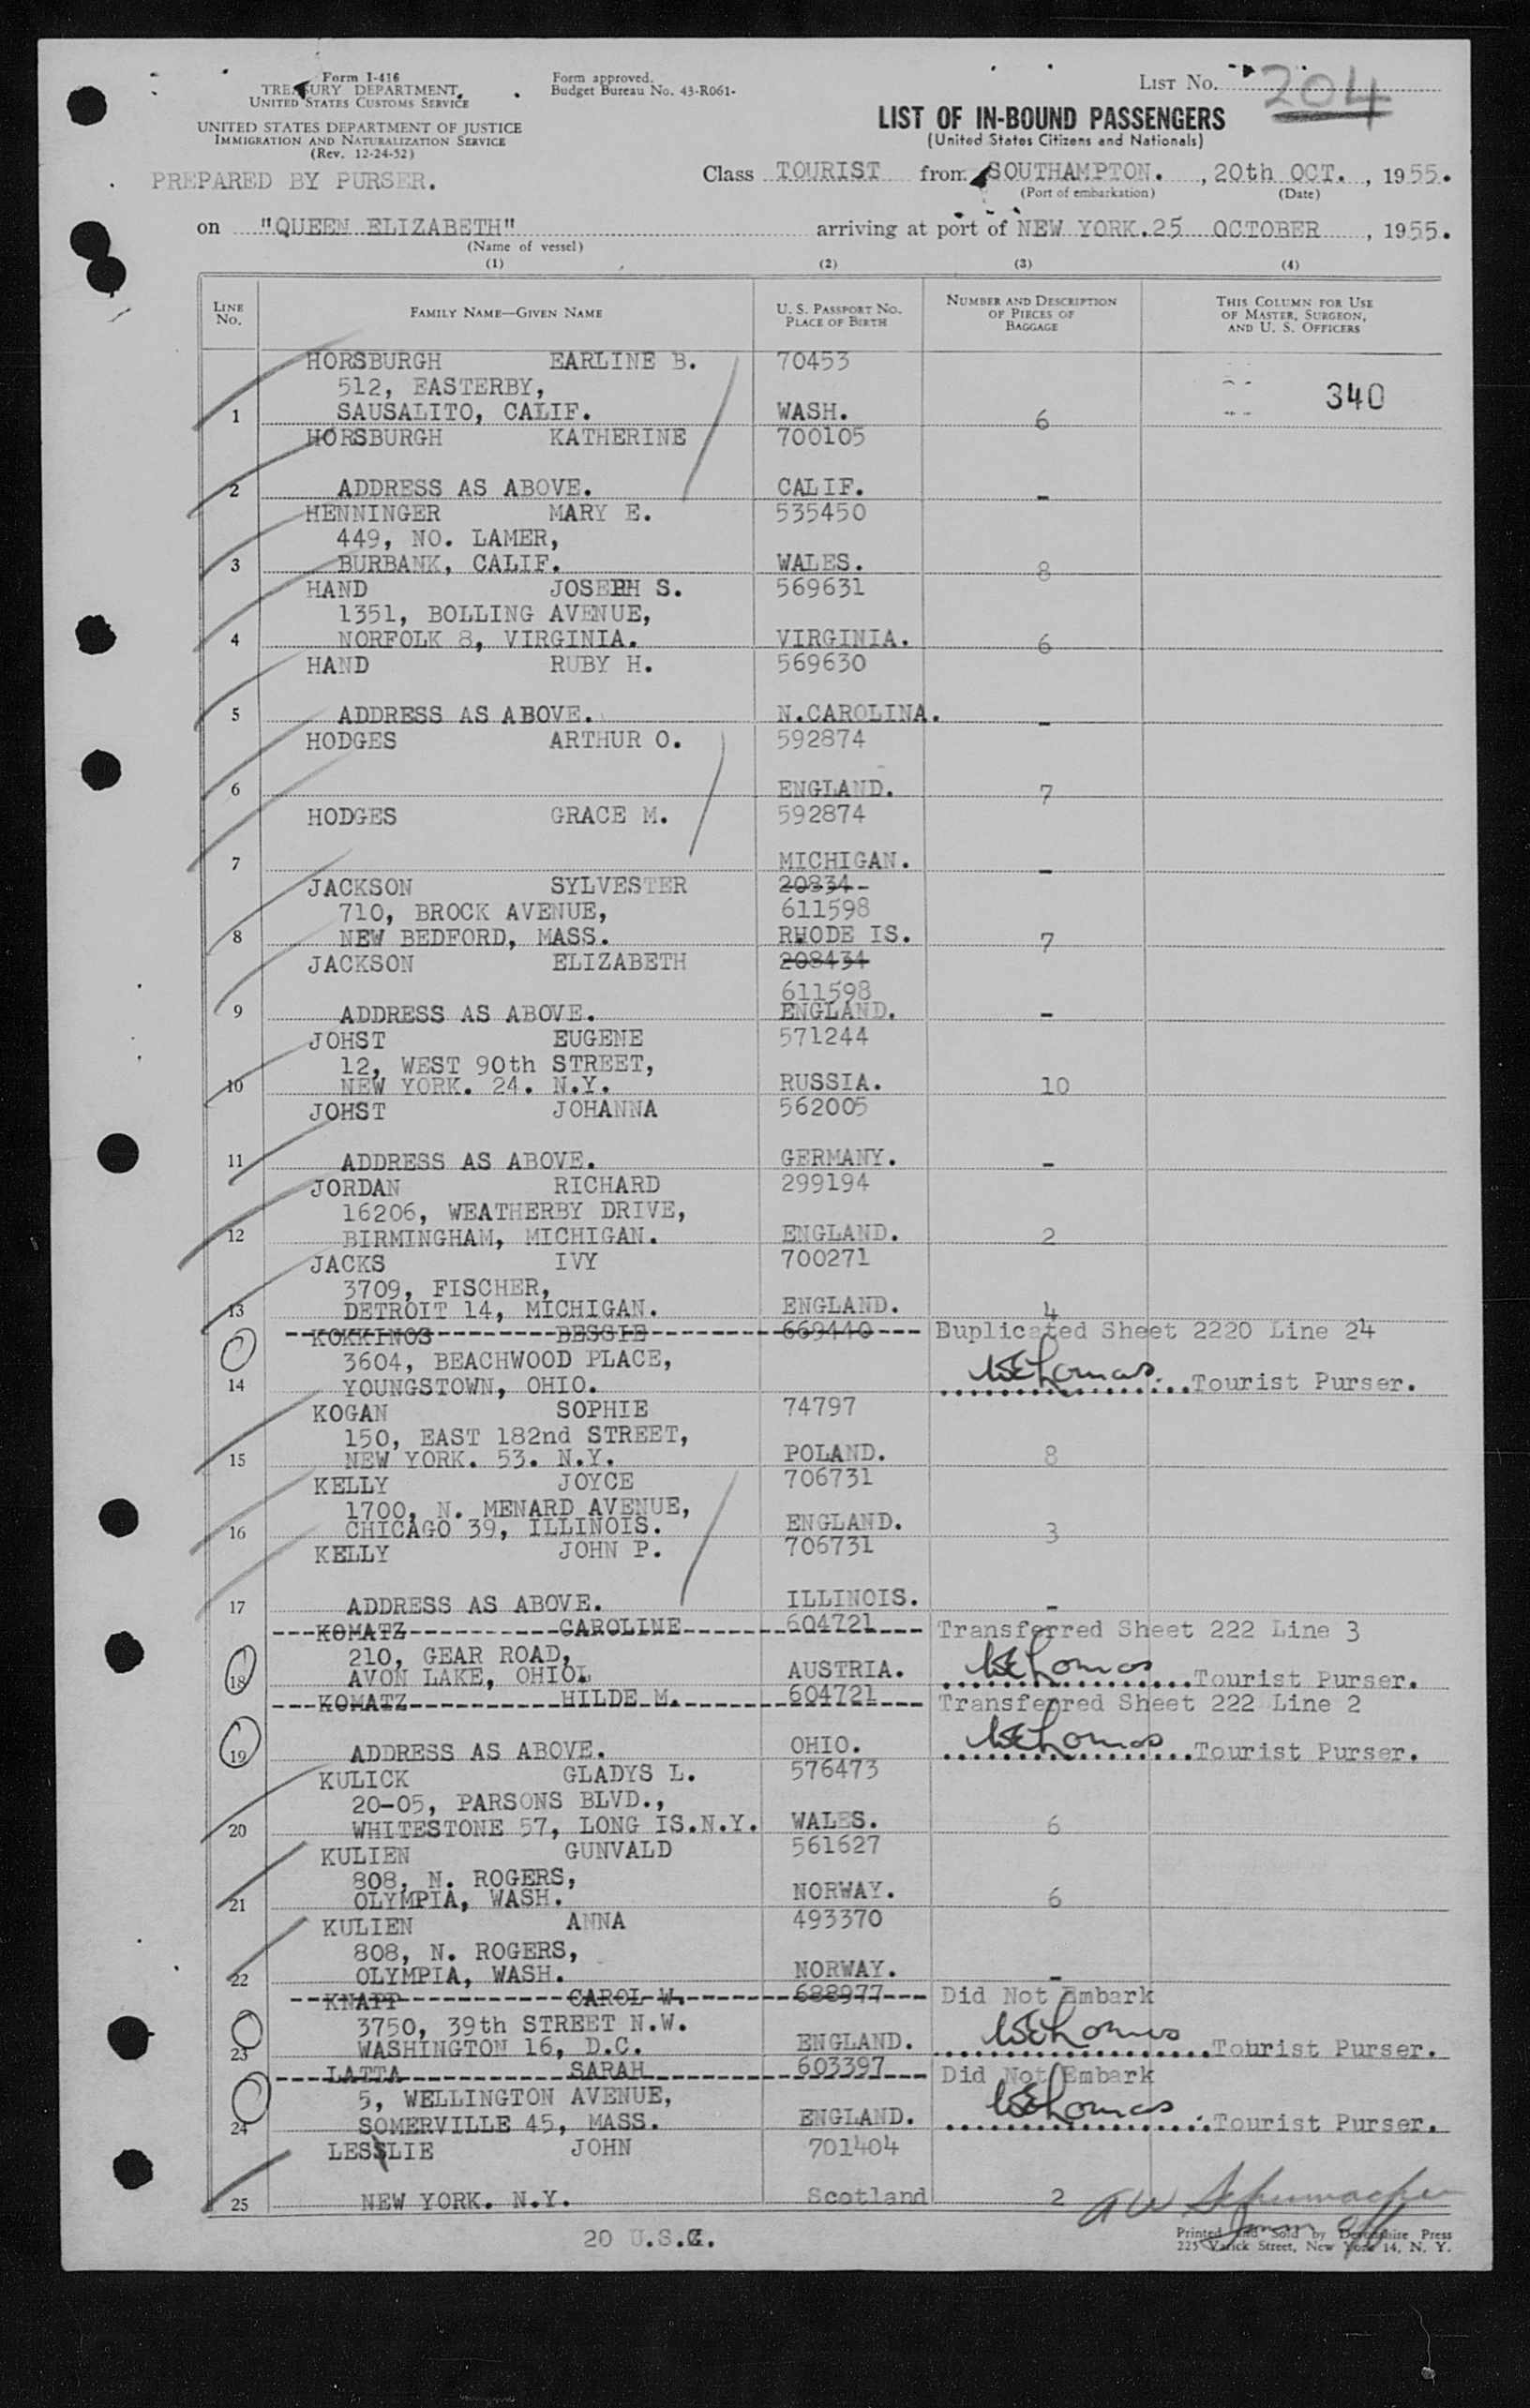 Form I-416
TREASURY DEPARTMENT
UNITED STATES CUSTOMS SERVICE
UNITED STATES DEPARTMENT OF JUSTICE
IMMIGRATION AND NATURALIZATION SERVICE
(Rev. 12-24-52)
PREPARED BY PURSER.
Form approved.
Budget Bureau No. 43-R061-
LIST NO. 204
LIST OF IN-BOUND PASSENGERS
(United States Citizens and Nationals)
Class TOURIST from SOUTHAMPTON. , 20th OCT. , 1955.
(Port of embarkation) (Date)
on "QUEEN ELIZABETH" arriving at port of NEW YORK. 25 OCTOBER , 1955.
(Name of vessel)
(1) (2) (3) (4)
LINE NO. FAMILY NAME—GIVEN NAME U. S. PASSPORT NO. PLACE OF BIRTH NUMBER AND DESCRIPTION OF PIECES OF BAGGAGE THIS COLUMN FOR USE OF MASTER, SURGEON, AND U. S. OFFICERS
HORSBURGH EARLINE B. 70453
512, EASTERBY, 340
1 SAUSALITO, CALIF. WASH. 6
HORSBURGH KATHERINE 700105
2 ADDRESS AS ABOVE. CALIF. -
HENNINGER MARY E. 535450
449, NO. LAMER,
3 BURBANK, CALIF. WALES. 8
HAND JOSEPH S. 569631
1351, BOLLING AVENUE,
4 NORFOLK 8, VIRGINIA. VIRGINIA. 6
HAND RUBY H. 569630
5 ADDRESS AS ABOVE. N.CAROLINA. -
HODGES ARTHUR O. 592874
6 ENGLAND. 7
HODGES GRACE M. 592874
7 MICHIGAN. -
JACKSON SYLVESTER 20834-
710, BROCK AVENUE, 611598
8 NEW BEDFORD, MASS. RHODE IS. 7
JACKSON ELIZABETH 208434
611598
9 ADDRESS AS ABOVE. ENGLAND. -
JOHST EUGENE 571244
12, WEST 90th STREET,
10 NEW YORK. 24. N.Y. RUSSIA. 10
JOHST JOHANNA 562005
11 ADDRESS AS ABOVE. GERMANY. -
JORDAN RICHARD 299194
16206, WEATHERBY DRIVE,
12 BIRMINGHAM, MICHIGAN. ENGLAND. 2
JACKS IVY 700271
3709, FISCHER,
13 DETROIT 14, MICHIGAN. ENGLAND. 4
KOKKINOS BESSIE 669440 Euplicated Sheet 2220 Line 24
3604, BEACHWOOD PLACE,
14 YOUNGSTOWN, OHIO. WEThomas Tourist Purser.
KOGAN SOPHIE 74797
150, EAST 182nd STREET,
15 NEW YORK. 53. N.Y. POLAND. 8
KELLY JOYCE 706731
1700, N. MENARD AVENUE,
16 CHICAGO 39, ILLINOIS. ENGLAND. 3
KELLY JOHN P. 706731
17 ADDRESS AS ABOVE. ILLINOIS. -
KOMATZ CAROLINE 604721 Transferred Sheet 222 Line 3
210, GEAR ROAD,
18 AVON LAKE, OHIO. AUSTRIA. WEThomas Tourist Purser.
KOMATZ HILDE M. 604721 Transferred Sheet 222 Line 2
19 ADDRESS AS ABOVE. OHIO. WEThomas Tourist Purser.
KULICK GLADYS L. 576473
20-05, PARSONS BLVD.,
20 WHITESTONE 57, LONG IS.N.Y. WALES. 6
KULIEN GUNVALD 561627
808, N. ROGERS,
21 OLYMPIA, WASH. NORWAY. 6
KULIEN ANNA 493370
808, N. ROGERS,
22 OLYMPIA, WASH. NORWAY. -
KNAPP CAROL W. 688977 Did Not Embark
3750, 39th STREET N.W.
23 WASHINGTON 16, D.C. ENGLAND. WEThomas Tourist Purser.
LATTA SARAH 603397 Did Not Embark
5, WELLINGTON AVENUE,
24 SOMERVILLE 45, MASS. ENGLAND. WEThomas Tourist Purser.
LESSLIE JOHN 701404
25 NEW YORK. N.Y. Scotland 2
A W Schumacher
20 U.S.C.
Printed and Sold by Devonshire Press
225 Varick Street, New York 14, N. Y.